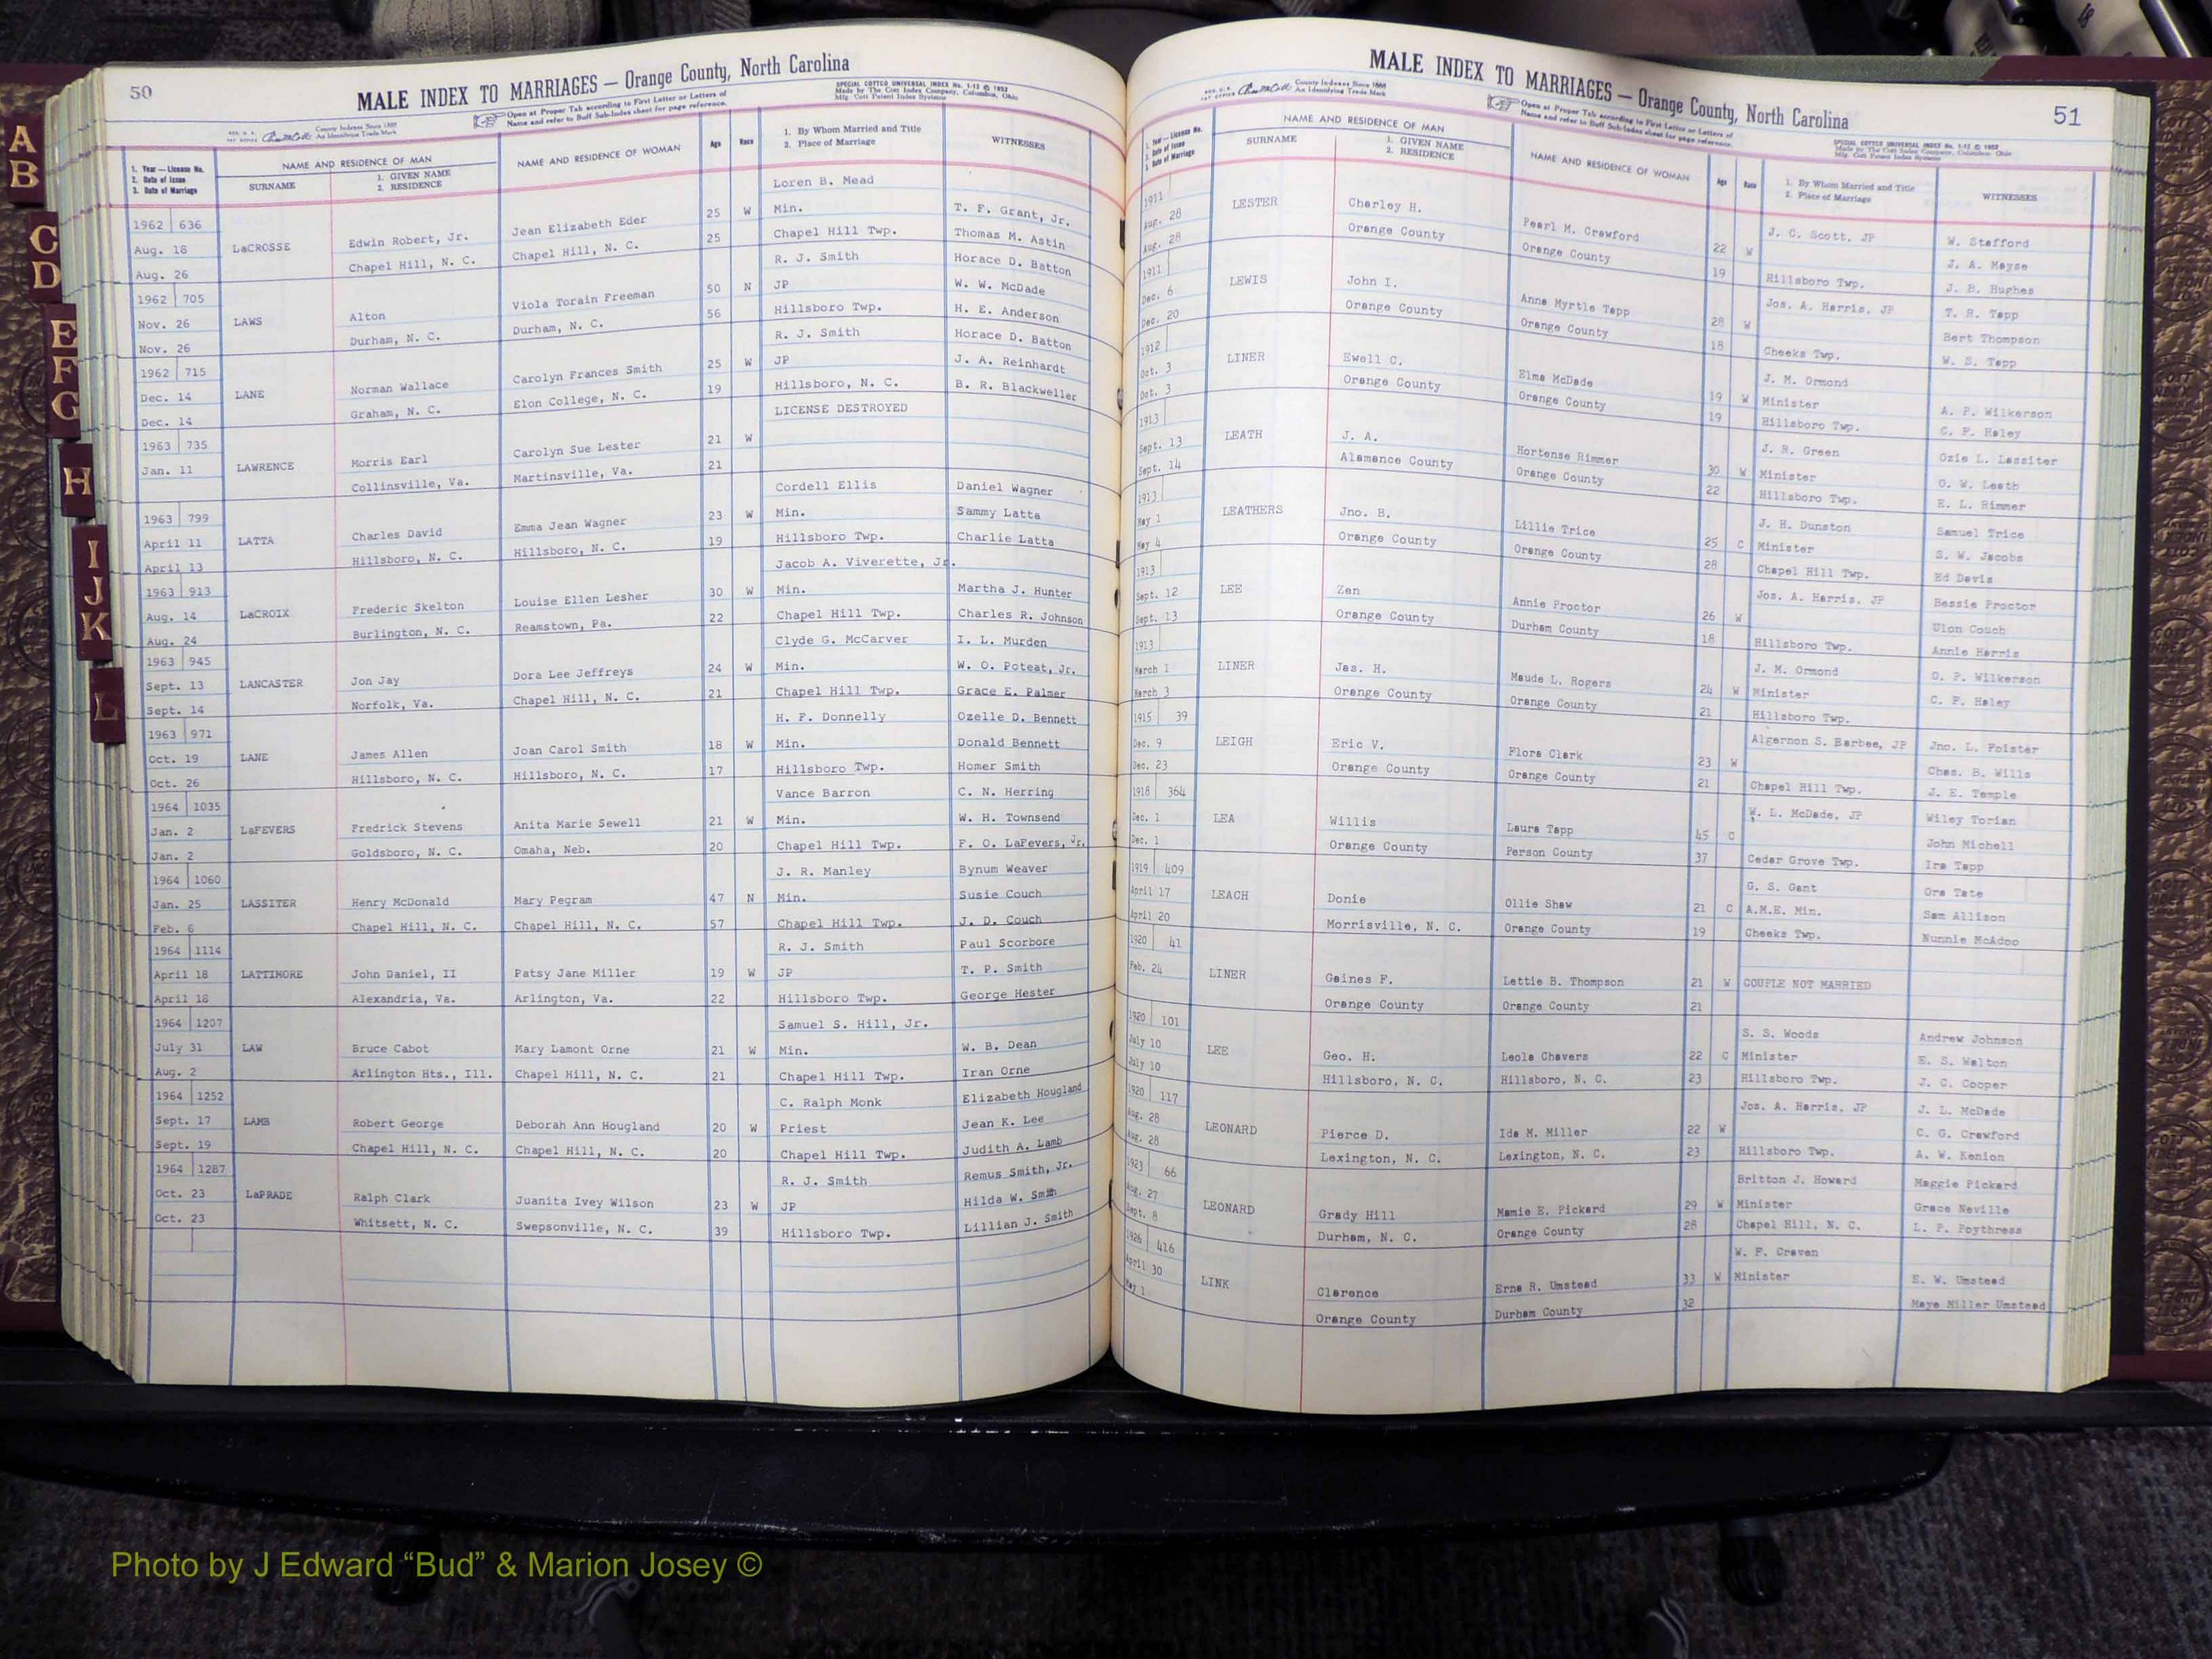 50
MALE INDEX TO MARRIAGES — Orange County, North Carolina
REG. U. S. PAT. OFFICE County Indexes Since 1888 An Identifying Trade Mark
Open at Proper Tab according to First Letter or Letters of Name and refer to Buff Sub-Index sheet for page reference.
SPECIAL COTTCO UNIVERSAL INDEX No. 1-12 © 1952
Made by The Cott Index Company, Columbus, Ohio
Mfg. Cott Patent Index Systems
1. Year — License No. 2. Date of Issue 3. Date of Marriage
NAME AND RESIDENCE OF MAN SURNAME 1. GIVEN NAME 2. RESIDENCE
NAME AND RESIDENCE OF WOMAN Age Race 1. By Whom Married and Title 2. Place of Marriage WITNESSES
Loren B. Mead
1962 636 Jean Elizabeth Eder 25 W Min. T. F. Grant, Jr.
Aug. 18 LaCROSSE Edwin Robert, Jr. Chapel Hill, N. C. 25 Chapel Hill Twp. Thomas M. Astin
Aug. 26 Chapel Hill, N. C. R. J. Smith Horace D. Batton
1962 705 Viola Torain Freeman 50 N JP W. W. McDade
Nov. 26 LAWS Alton Durham, N. C. 56 Hillsboro Twp. H. E. Anderson
Nov. 26 Durham, N. C. R. J. Smith Horace D. Batton
1962 715 Carolyn Frances Smith 25 W JP J. A. Reinhardt
Dec. 14 LANE Norman Wallace Elon College, N. C. 19 Hillsboro, N. C. B. R. Blackweller
Dec. 14 Graham, N. C. LICENSE DESTROYED
1963 735 Carolyn Sue Lester 21 W
Jan. 11 LAWRENCE Morris Earl Martinsville, Va. 21
Collinsville, Va. Cordell Ellis Daniel Wagner
1963 799 Emma Jean Wagner 23 W Min. Sammy Latta
April 11 LATTA Charles David Hillsboro, N. C. 19 Hillsboro Twp. Charlie Latta
April 13 Hillsboro, N. C. Jacob A. Viverette, Jr.
1963 913 Louise Ellen Lesher 30 W Min. Martha J. Hunter
Aug. 14 LaCROIX Frederic Skelton Reamstown, Pa. 22 Chapel Hill Twp. Charles R. Johnson
Aug. 24 Burlington, N. C. Clyde G. McCarver I. L. Murden
1963 945 Dora Lee Jeffreys 24 W Min. W. O. Poteat, Jr.
Sept. 13 LANCASTER Jon Jay Chapel Hill, N. C. 21 Chapel Hill Twp. Grace E. Palmer
Sept. 14 Norfolk, Va. H. F. Donnelly Ozelle D. Bennett
1963 971 Joan Carol Smith 18 W Min. Donald Bennett
Oct. 19 LANE James Allen Hillsboro, N. C. 17 Hillsboro Twp. Homer Smith
Oct. 26 Hillsboro, N. C. Vance Barron C. N. Herring
1964 1035 Anita Marie Sewell 21 W Min. W. H. Townsend
Jan. 2 LaFEVERS Fredrick Stevens Omaha, Neb. 20 Chapel Hill Twp. F. O. LaFevers, Jr.
Jan. 2 Goldsboro, N. C. J. R. Manley Bynum Weaver
1964 1060
Jan. 25 LASSITER Henry McDonald Mary Pegram 47 N Min. Susie Couch
Feb. 6 Chapel Hill, N. C. Chapel Hill, N. C. 57 Chapel Hill Twp. J. D. Couch
1964 1114 R. J. Smith Paul Scorbore
April 18 LATTIMORE John Daniel, II Patsy Jane Miller 19 W JP T. P. Smith
April 18 Alexandria, Va. Arlington, Va. 22 Hillsboro Twp. George Hester
1964 1207 Samuel S. Hill, Jr.
July 31 LAW Bruce Cabot Mary Lamont Orne 21 W Min. W. B. Dean
Aug. 2 Arlington Hts., Ill. Chapel Hill, N. C. 21 Chapel Hill Twp. Iran Orne
1964 1252 C. Ralph Monk Elizabeth Hougland
Sept. 17 LAMB Robert George Deborah Ann Hougland 20 W Priest Jean K. Lee
Sept. 19 Chapel Hill, N. C. Chapel Hill, N. C. 20 Chapel Hill Twp. Judith A. Lamb
1964 1287 R. J. Smith Remus Smith, Jr.
Oct. 23 LaPRADE Ralph Clark Juanita Ivey Wilson 23 W JP Hilda W. Smith
Oct. 23 Whitsett, N. C. Swepsonville, N. C. 39 Hillsboro Twp. Lillian J. Smith
A
B
C
D
E
F
G
H
I
J
K
L
MALE INDEX TO MARRIAGES — Orange County, North Carolina
51
REG. U. S. PAT. OFFICE County Indexes Since 1888 An Identifying Trade Mark
Open at Proper Tab according to First Letter or Letters of Name and refer to Buff Sub-Index sheet for page reference.
SPECIAL COTTCO UNIVERSAL INDEX No. 1-12 © 1952
Made by The Cott Index Company, Columbus, Ohio
Mfg. Cott Patent Index Systems
1. Year — License No. 2. Date of Issue 3. Date of Marriage
NAME AND RESIDENCE OF MAN SURNAME 1. GIVEN NAME 2. RESIDENCE
NAME AND RESIDENCE OF WOMAN Age Race 1. By Whom Married and Title 2. Place of Marriage WITNESSES
1911 J. C. Scott, JP W. Stafford
Aug. 28 LESTER Charley H. Pearl M. Crawford 22 W J. A. Mayse
Aug. 28 Orange County Orange County 19 Hillsboro Twp. J. B. Hughes
1911 Jos. A. Harris, JP T. R. Tapp
Dec. 6 LEWIS John I. Anna Myrtle Tapp 28 W Bert Thompson
Dec. 20 Orange County Orange County 18 Cheeks Twp. W. S. Tapp
1912 J. M. Ormond
Oct. 3 LINER Ewell C. Elma McDade 19 W Minister A. P. Wilkerson
Oct. 3 Orange County Orange County 19 Hillsboro Twp. C. F. Haley
1913 J. R. Green Ozie L. Lassiter
Sept. 13 LEATH J. A. Hortense Rimmer 30 W Minister O. W. Leath
Sept. 14 Alamance County Orange County 22 Hillsboro Twp. E. L. Rimmer
1913 J. H. Dunston Samuel Trice
May 1 LEATHERS Jno. B. Lillie Trice 25 C Minister S. W. Jacobs
May 4 Orange County Orange County 28 Chapel Hill Twp. Ed Davis
1913 Jos. A. Harris, JP Bessie Proctor
Sept. 12 LEE Zen Annie Proctor 26 W Ulon Couch
Sept. 13 Orange County Durham County 18 Hillsboro Twp. Annie Harris
1913 J. M. Ormond O. P. Wilkerson
March 1 LINER Jas. H. Maude L. Rogers 24 W Minister C. F. Haley
March 3 Orange County Orange County 21 Hillsboro Twp.
1915 39 Algernon S. Barbee, JP Jno. L. Foister
Dec. 9 LEIGH Eric V. Flora Clark 23 W Chas. B. Wills
Dec. 23 Orange County Orange County 21 Chapel Hill Twp. J. E. Temple
1918 364 W. L. McDade, JP Wiley Torian
Dec. 1 LEA Willis Laura Tapp 45 C John Michell
Dec. 1 Orange County Person County 37 Cedar Grove Twp. Ira Tapp
1919 409 G. S. Gant Ora Tate
April 17 LEACH Donie Ollie Shaw 21 C A.M.E. Min. Sam Allison
April 20 Morrisville, N. C. Orange County 19 Cheeks Twp. Nunnie McAdoo
1920 41
Feb. 24 LINER Gaines F. Lettie B. Thompson 21 W COUPLE NOT MARRIED
Orange County Orange County 21
1920 101 S. S. Woods Andrew Johnson
July 10 LEE Geo. H. Leola Chavers 22 C Minister E. S. Walton
July 10 Hillsboro, N. C. Hillsboro, N. C. 23 Hillsboro Twp. J. C. Cooper
1920 117 Jos. A. Harris, JP J. L. McDade
Aug. 28 LEONARD Pierce D. Ida M. Miller 22 W C. G. Crawford
Aug. 28 Lexington, N. C. Lexington, N. C. 23 Hillsboro Twp. A. W. Kenion
1923 66 Britton J. Howard Maggie Pickard
Aug. 27 LEONARD Grady Hill Mamie E. Pickard 29 W Minister Grace Neville
Sept. 8 Durham, N. C. Orange County 28 Chapel Hill, N. C. L. P. Poythress
1926 416 W. F. Craven
April 30 LINK Clarence Erna R. Umstead 33 W Minister E. W. Umstead
May 1 Orange County Durham County 32 Maye Miller Umstead
Photo by J Edward “Bud” & Marion Josey ©